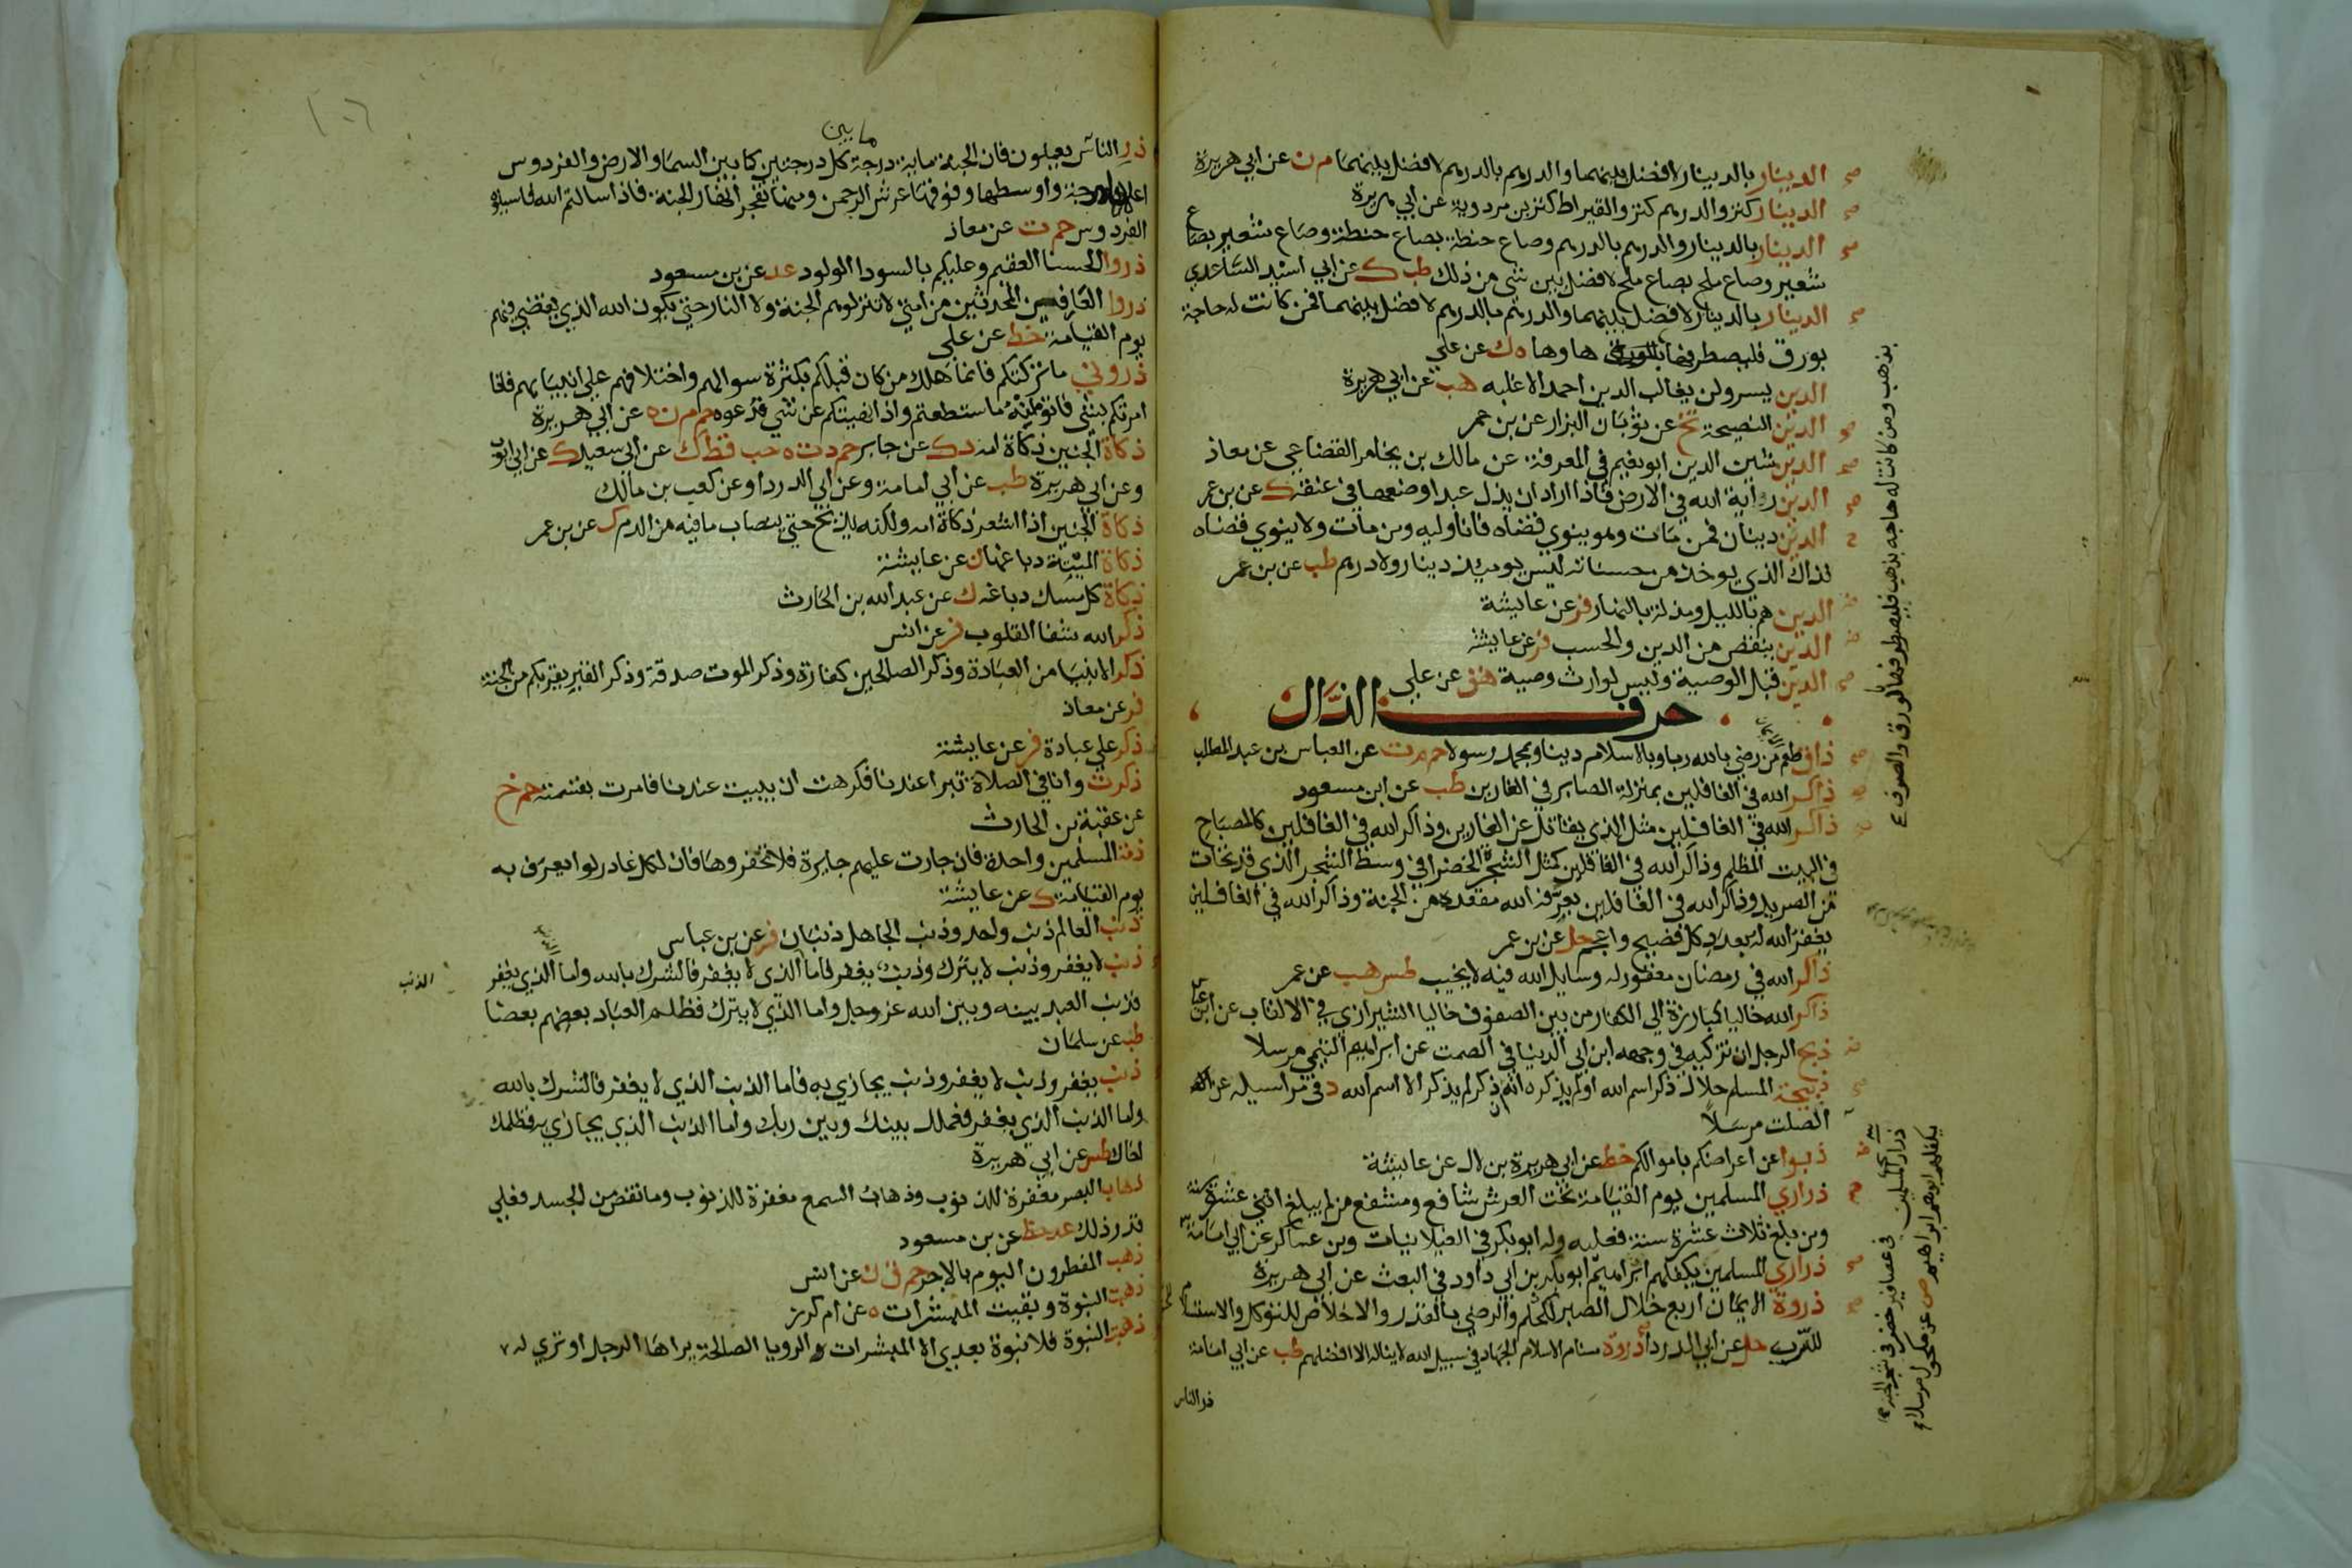 الدينار بالدينار لا فضل بينهما والدرهم بالدرهم لا فضل بينهما م ن عن ابي هريرة
الدينار كنز والدرهم كنز والقيراط كنز بن مردوية عن ابي هريرة
الدينار بالدينار والدرهم بالدرهم وصاع حنطة بصاع حنطة وصاع شعير بصاع
شعير وصاع ملح بصاع ملح لا فضل بين شي من ذلك طب ك عن ابي اسيد الساعدي
الدينار بالدينار لا فضل بينهما والدرهم بالدرهم لا فضل بينهما فمن كانت له حاجة
بورق فليصطرفها ها وها ه ك عن علي
الدين يسر ولن يغالب الدين احد الا غلبه هب عن ابي هريرة
الدين النصيحة تخ عن ثوبان البزار عن بن عمر
الدين شين الدين ابو نعيم في المعرفة عن مالك بن يخامر القضاعي عن معاذ
الدين راية الله في الارض فاذا اراد ان يذل عبدا وضعها في عنقه ك عن بن عمر
الدين دينان فمن مات وهو ينوي قضاه فانا وليه ومن مات ولا ينوي قضاه
فذاك الذي يوخذ من حسناته ليس يوميذ دينار ولا درهم طب عن بن عمر
الدين هم بالليل ومذلة بالنهار فر عن عايشة
الدين ينقص من الدين والحسب فر عن عايشة
الدين قبل الوصية وليس لوارث وصية هق عن علي
حرف الذال
ذاق طعم الايمان من رضي بالله ربا وبالاسلام دينا وبمحمد رسولا حم م ت عن العباس بن عبد المطلب
ذاكر الله في الغافلين بمنزلة الصابر في الفارين طب عن ابن مسعود
ذاكر الله في الغافلين مثل الذي يقاتل عن الفارين وذاكر الله في الغافلين كالمصباح
في البيت المظلم وذاكر الله في الغافلين كمثل الشجرة الخضرا في وسط الشجر الذي قد تحات
من الصريد وذاكر الله في الغافلين يعرفه الله مقعده من الجنة وذاكر الله في الغافلين
يغفر الله له بعدد كل فصيح واعجم حل عن بن عمر
ذاكر الله في رمضان مغفور له وسايل الله فيه لا يخيب طس هب عن عمر
ذاكر الله خاليا كمبارزة الي الكفار من بين الصفوف خاليا الشيرازي في الالقاب عن ابن عباس
ذبح الرجل ان تزكيه في وجهه ابن ابي الدنيا في الصمت عن ابراهيم التيمي مرسلا
ذبيحة المسلم حلال ذكر اسم الله او لم يذكره انه ان ذكر لم يذكر الا اسم الله د في مراسيله عن
الصلت مرسلا
ذبوا عن اعراضكم باموالكم خط عن ابي هريرة بن لال عن عايشة
ذراري المسلمين يوم القيامة تحت العرش شافع ومشفع من لم يبلغ اثني عشرة سنة
ومن بلغ ثلاث عشرة سنة فعليه وله ابو بكر في الغيلانيات وبن عساكر عن ابي امامة
ذراري المسلمين يكفلهم ابراهيم ابو بكر بن ابي داود في البعث عن ابي هريرة
ذروة الايمان اربع خلال الصبر للحكم والرضي بالقدر والاخلاص للتوكل والاستسلام
للرب حل عن ابي الدردا ذروة سنام الاسلام الجهاد في سبيل الله لا يناله الا افضلهم طب عن ابي امامة
ذر الناس
بذهب ومن كانت له حاجه بذهب فليصطرفها بالورق والصرف
ذراري المسلمين في عصافير خضر في شجر الجنة
يكفلهم ابوهم ابراهيم ص عن مكحول مرسلا
١٠٦
ما بين
ذر الناس يعملون فان الجنة ماية درجة كل درجتين كما بين السما والارض والفردوس
اعلاها درجة واوسطها وفوقها عرش الرحمن ومنها تفجر انهار الجنة فاذا سالتم الله فاسيلوه
الفردوس حم ت عن معاذ
ذروا الحسنا العقيم وعليكم بالسودا الولود عد عن بن مسعود
ذروا العارفين المحدثين من امتي لا تنزلوهم الجنة ولا النار حتي يكون الله الذي يقضي فيهم
يوم القيامة خط عن علي
ذروني ما تركتكم فانما هلك من كان قبلكم بكثرة سوالهم واختلافهم علي انبيايهم فاذا
امرتكم بشي فاتوا منه ما استطعتم واذا نهيتكم عن شي فدعوه حم م ن ه عن ابي هريرة
ذكاة الجنين ذكاة امه د ك عن جابر حم د ت ه حب قط ك عن ابي سعيد ك عن ابي ايوب
وعن ابي هريرة طب عن ابي امامة وعن ابي الدردا وعن كعب بن مالك
ذكاة الجنين اذا اشعر ذكاة امه ولكنه يذبح حتي ينصاب ما فيه من الدم ك عن بن عمر
ذكاة الميتة دباغها ن عن عايشة
ذكاة كل مسك دباغه ك عن عبد الله بن الحارث
ذكر الله شفا القلوب فر عن انس
ذكر الانبيا من العبادة وذكر الصالحين كفارة وذكر الموت صدقة وذكر القبر يقربكم من الجنة
فر عن معاذ
ذكر علي عبادة فر عن عايشة
ذكرت وانا في الصلاة تبرا عندنا فكرهت ان يبيت عندنا فامرت بقسمته حم خ
عن عقبة بن الحارث
ذمة المسلمين واحدة فان جارت عليهم جايرة فلا تخفروها فان لكل غادر لوا يعرف به
يوم القيامة ك عن عايشة
ذنب العالم ذنب واحد وذنب الجاهل ذنبان فر عن بن عباس
ذنب لا يغفر وذنب لا يترك وذنب يغفر فاما الذي لا يغفر فالشرك بالله واما الذي يغفر
الذنب
فذنب العبد بينه وبين الله عز وجل واما الذي لا يترك فظلم العباد بعضهم بعضا
طب عن سلمان
ذنب يغفر وذنب لا يغفر وذنب يجازي به فاما الذنب الذي لا يغفر فالشرك بالله
واما الذنب الذي يغفر فعملك بينك وبين ربك واما الذنب الذي يجازي به فظلمك
اخاك طس عن ابي هريرة
ذهاب البصر مغفرة للذنوب وذهاب السمع مغفرة للذنوب وما نقص من الجسد فعلي
قدر ذلك عد خط عن بن مسعود
ذهب المفطرون اليوم بالاجر حم ق ن عن انس
ذهبت النبوة وبقيت المبشرات ه عن ام كرز
ذهبت النبوة فلا نبوة بعدي الا المبشرات الرويا الصالحة يراها الرجل او تري له